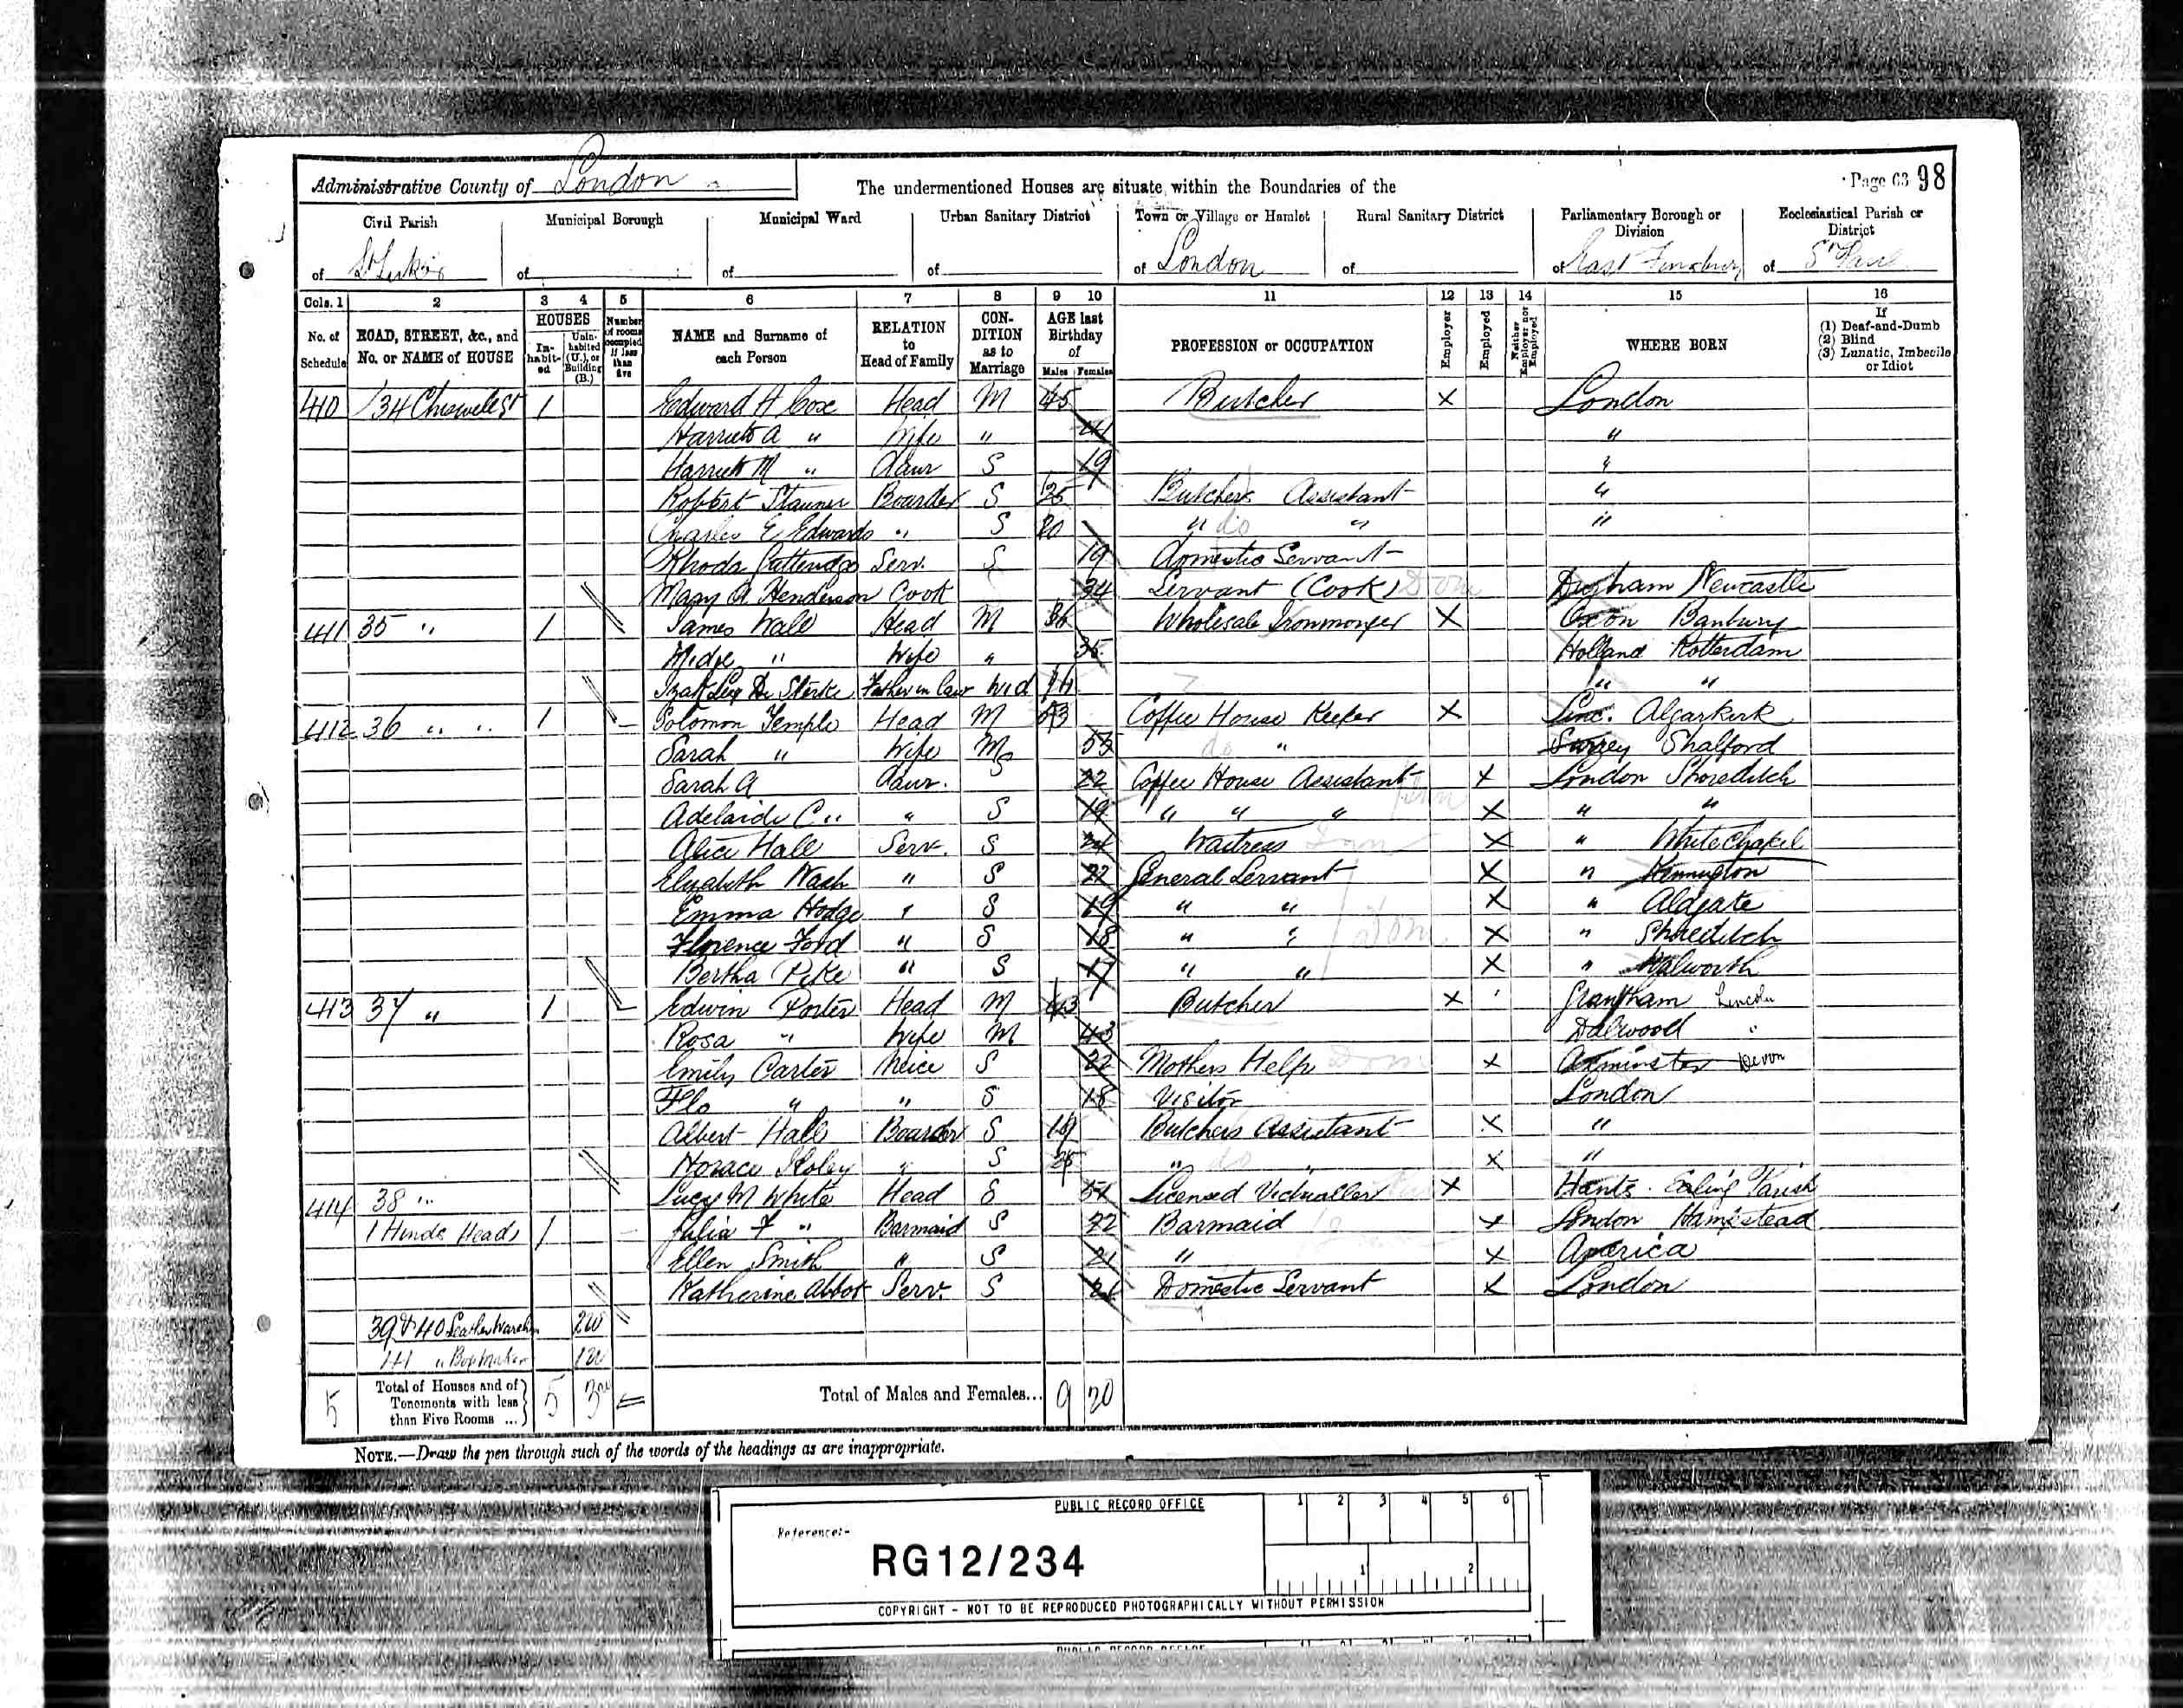 Administrative County of London
The undermentioned Houses are situate within the Boundaries of the
Page 63 98
Civil Parish
Municipal Borough
Municipal Ward
Urban Sanitary District
Town or Village or Hamlet
Rural Sanitary District
Parliamentary Borough or Division
Ecclesiastical Parish or District
of St Luke's of of of of London of of East Finsbury of St Paul
Cols. 1 2 3 4 5 6 7 8 9 10 11 12 13 14 15 16
No. of Schedule
ROAD, STREET, &c., and No. or NAME of HOUSE
HOUSES
In-habit-ed
Unin-habited (U.), or Building (B.)
Number of rooms occupied if less than five
NAME and Surname of each Person
RELATION to Head of Family
CON-DITION as to Marriage
AGE last Birthday of
Males Females
PROFESSION or OCCUPATION
Employer
Employed
Neither Employer nor Employed
WHERE BORN
If
(1) Deaf-and-Dumb
(2) Blind
(3) Lunatic, Imbecile or Idiot
410 34 Chiswell St 1 Edward H Cox Head M 45 Butcher X London
Harriett A " Wife " 41 "
Harriett M " Daur S 19 "
Robert Boarder S 25 Butchers Assistant "
Charles E Edwards " S 20 " do " "
Rhoda Serv. S 19 Domestic Servant
Mary A Henderson Cook 34 Servant (Cook) Dom Durham Newcastle
411 35 " 1 James Wall Head M 36 Wholesale Ironmonger X Oxon Banbury
Wife " 35 Holland Rotterdam
Father in law Wid 74 " "
412 36 " " 1 Solomon Temple Head M 63 Coffee House Keeper X Linc. Algarkirk
Sarah " Wife M 53 do " Surrey Shalford
Sarah A Daur. S 22 Coffee House Assistant X London Shoreditch
Adelaide C " " S 19 " " " X " "
Alice Hall Serv. S Waitress Dom X " Whitechapel
Elizabeth Nash " S 22 General Servant X " Kennington
Emma Hodge " S 19 " " X " Aldgate
Florence Ford " S 18 " " Dom. X " Shoreditch
Bertha Pike " S 17 " " X " Walworth
413 37 " 1 Edwin Porter Head M 43 Butcher X Grantham Lincoln
Rosa " Wife M 43 Dalwood "
Emily Carter Neice S 22 Mothers Help Dom X Axminster Devon
Flo " " S 18 Visitor London
Albert Hall Boarder S 19 Butchers Assistant X "
Horace " S 25 " do " X "
414 38 " Lucy M White Head S 51 Licensed Victualler X Hants. Ealing Parish
1 Hinds Head 1 Julia F " Barmaid S 22 Barmaid X London Hampstead
Ellen Smith " S 21 " X America
Katherine Abbot Serv. S Domestic Servant X London
39 & 40 Leather Wareh 2W
41 " Bootmaker 1W
5 Total of Houses and of Tenements with less than Five Rooms ... 5 3 Total of Males and Females... 9 20
NOTE.—Draw the pen through such of the words of the headings as are inappropriate.
PUBLIC RECORD OFFICE
1 2 3 4 5 6
Reference:-
RG12/234
1 2
COPYRIGHT - NOT TO BE REPRODUCED PHOTOGRAPHICALLY WITHOUT PERMISSION
PUBLIC RECORD OFFICE